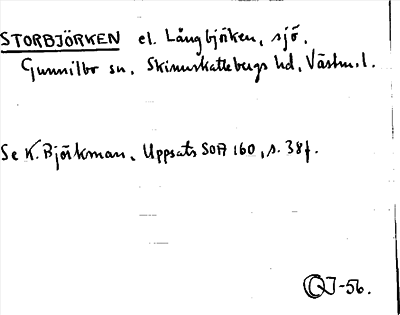 STORBJÖRKEN el. Långbjörken, sjö,
Gunnilbo sn, Skinnskattebergs hd, Västm.l.
Se K. Björkman, Uppsats SOA 160, s. 38f.
OJ-56.